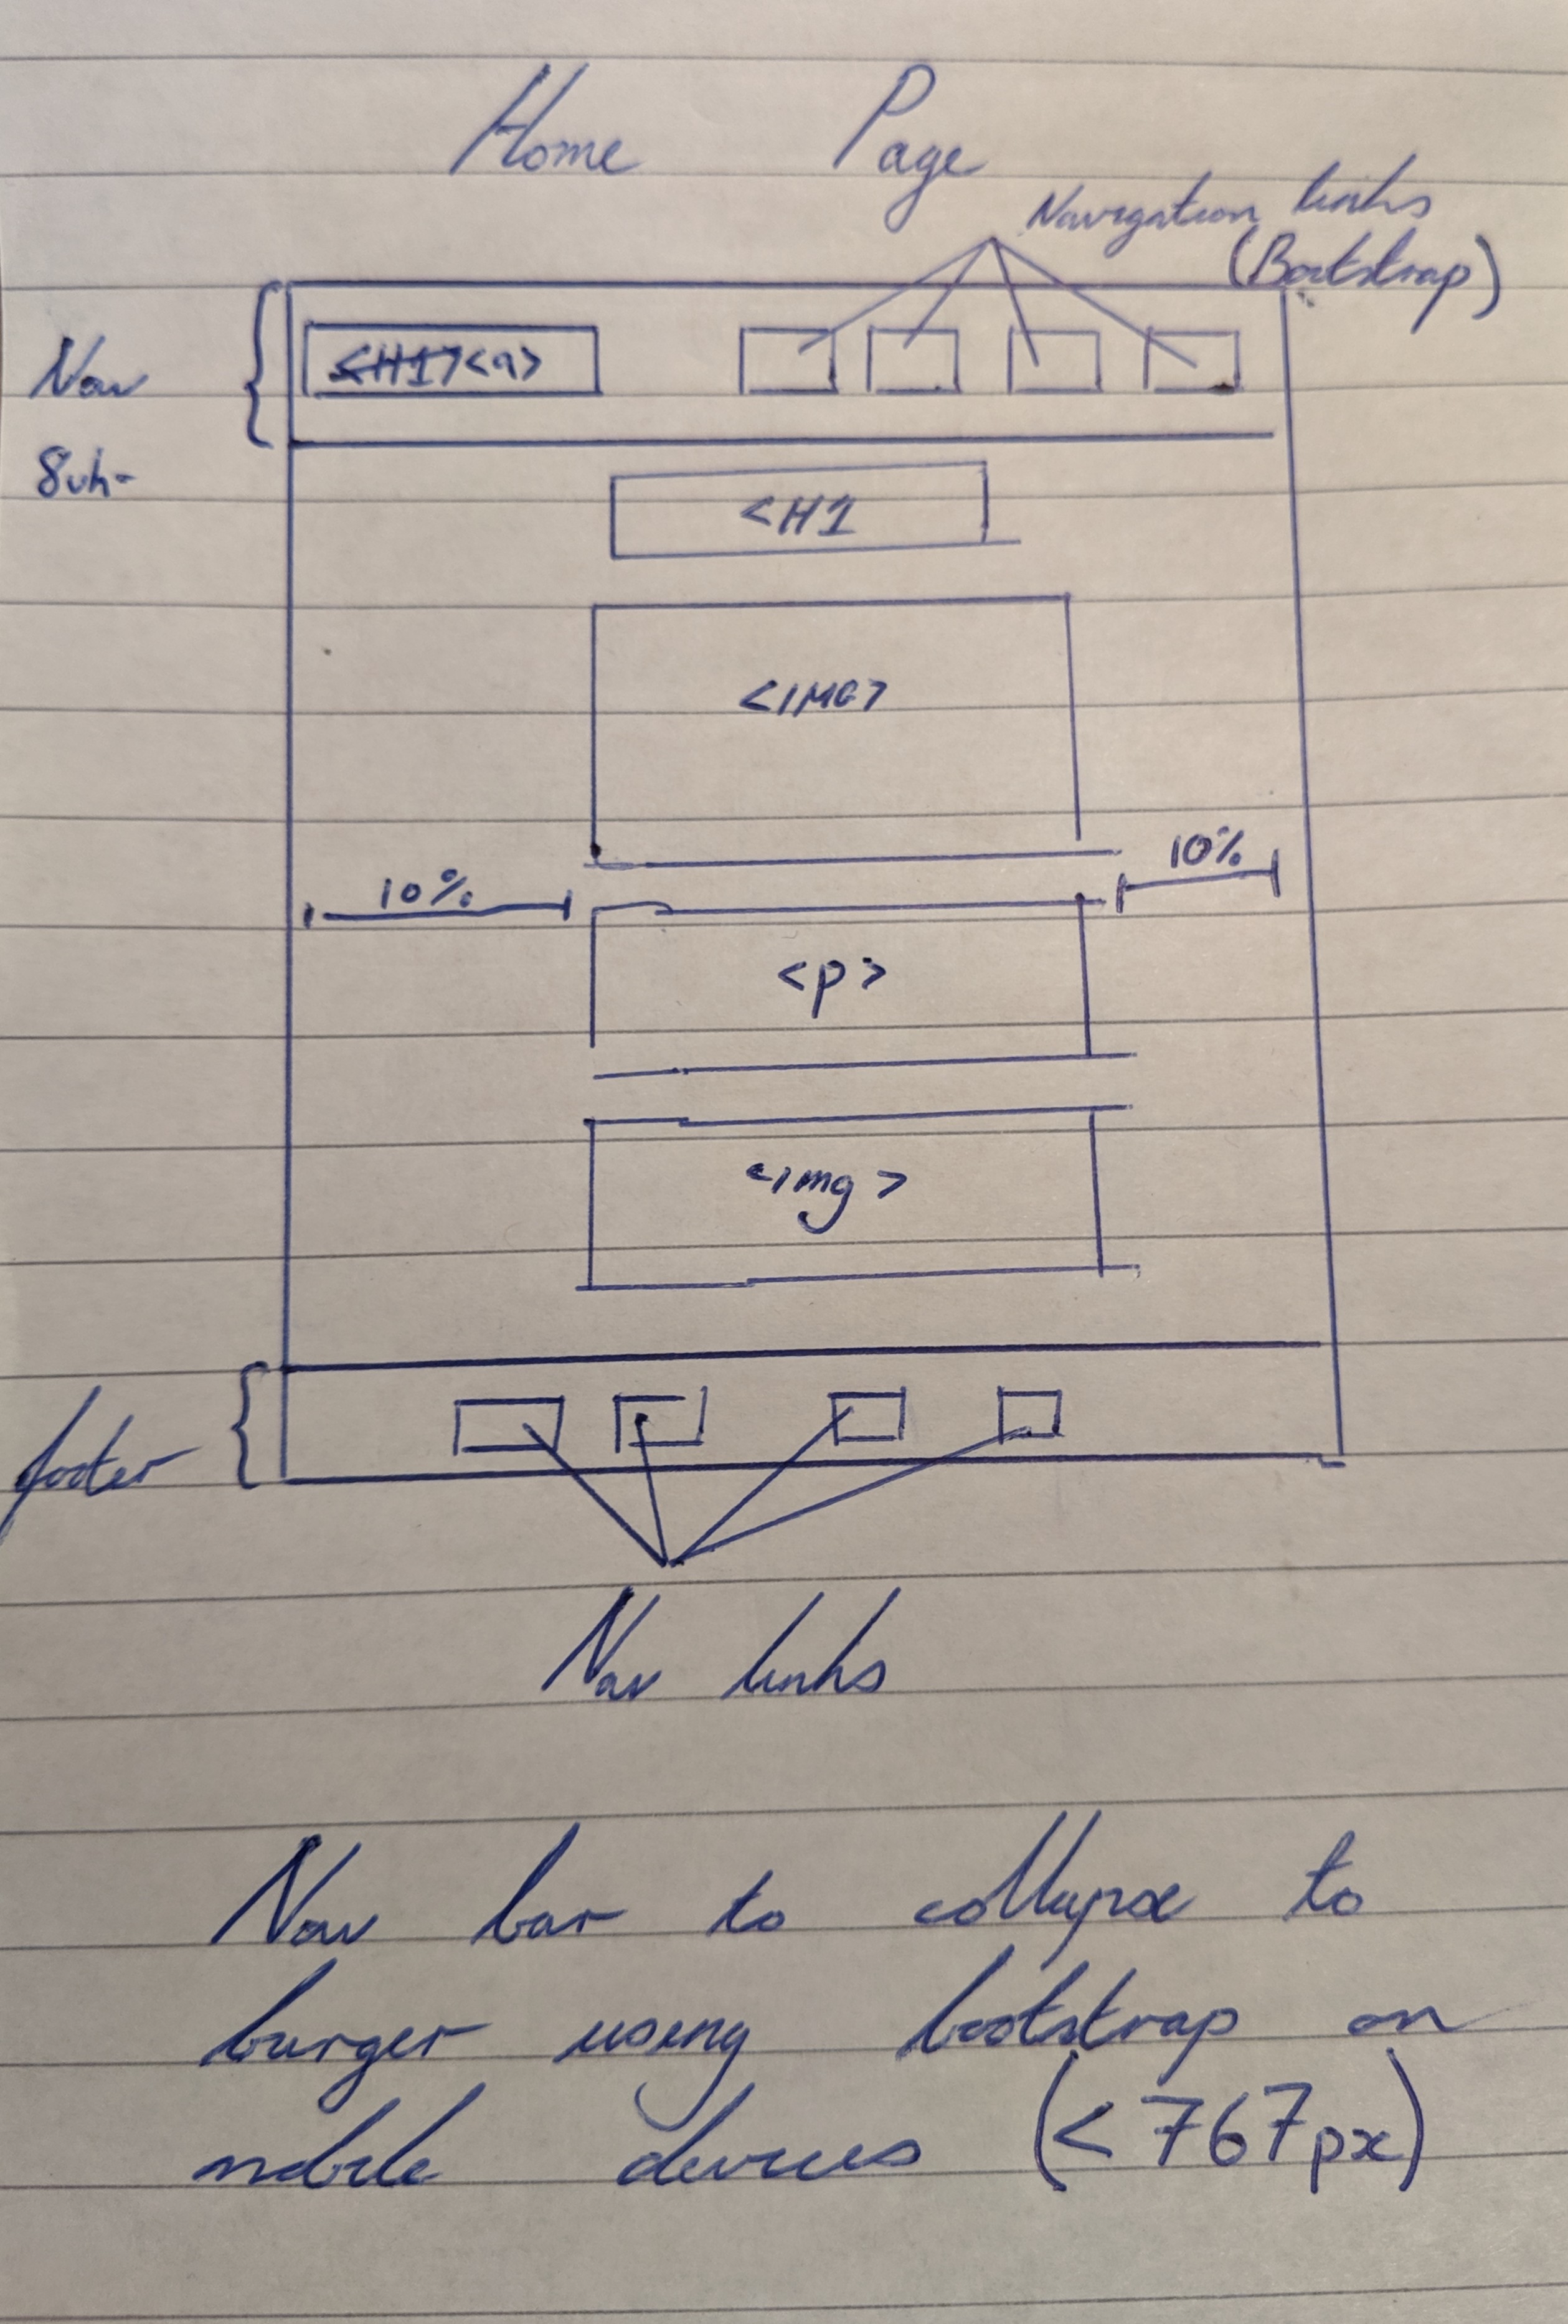 Home Page
Navigation links
(Bootstrap)
Nav
<H1><a>
8vh-
<H1
<IMG>
10%
10%
<p>
<img>
footer
Nav links
Nav bar to collapse to
burger using bootstrap on
mobile devices (<767px)